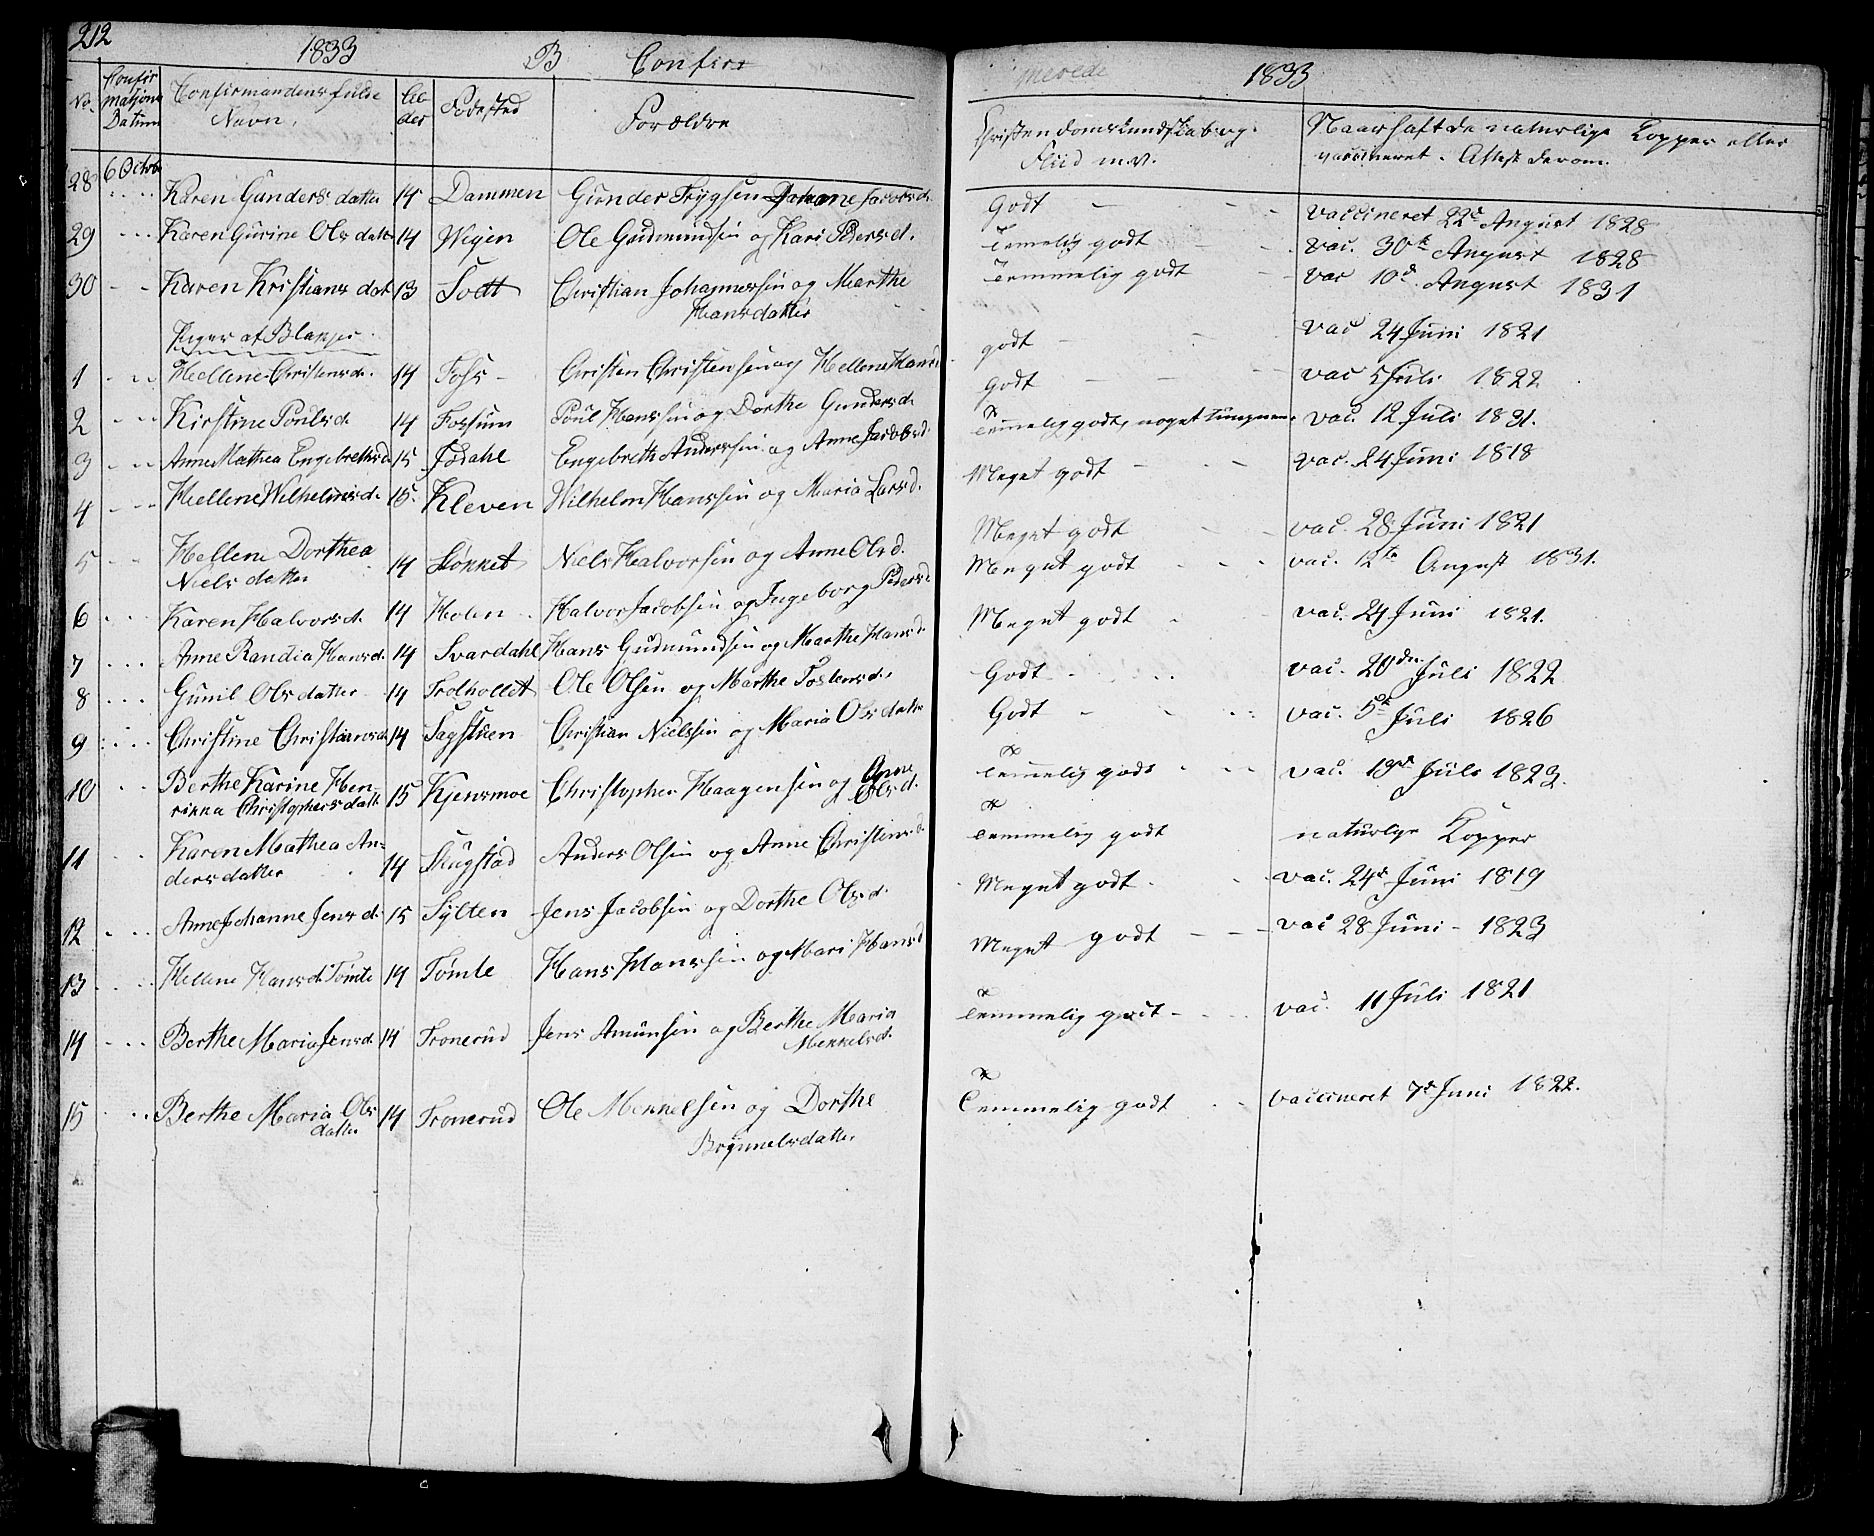 212
1833 B Confir-
merede 1833
No. Confirmations Datum Confirmandens fulde Navn. Alder Fødested Forældre Christendomskundskab og Fliid m.v. Naar havt de naturlige Kopper eller vaccineret. Attest derom.
28 6 Octobr Karen Gunders datter 14 Dammen Gunder Trygsen Johanne Jacobsd. Godt vaccineret 22d August 1828
29 Karen Gurine Ols datt 14 Wigen Ole Gudmundsen og Kari Pedersd. Temmelig godt vac. 30te August 1828
30 Karen Kristians dat 13 Sodt Christian Johannessen og Marthe Hansdatter Temmelig godt vac 10d August 1831
Piger af Blakjer
1 Hellene Christensd. 14 Fohs Christen Christensen og Hellene Hansd godt vac 24 Juni 1821
2 Kirstine Poulsd. 14 Fossum Poul Hanssen og Dorthe Gundersd. Godt vac 5 Juli 1822
3 Anne Mathea Engebrethsd 15 Jødahl Engebreth Anderssen og Anne Jacobsd. Temmelig godt, noget tungnem vac. 12 Juli 1831.
4 Hellene Wilhelmsd. 15. Kleven Wilhelm Hanssen og Maria Larsd. Meget godt vac. 24 Juni 1818
5 Hellene Dorthea Niels datter 14 Støkket Niels Halvorsen og Anne Olsd. Meget godt vac. 28 Juni 1821
6 Karen Halvorsd. 14 Holen Halvor Jacobsen og Ingeborg Pedersd Meget godt vac. 12te August 1831.
7 Anne Randia Hansd. 14 Svardahl Hans Gudmundsen og Marthe Hansd. Meget godt vac. 24 Juni 1821.
8 Gunil Olsdatter 14 Trolhollet Ole Olsen og Marthe Tostensd. Godt vac. 20de Juli 1822
9 Christine Christiansd. 14 Sagstuen Christian Nielssen og Maria Olsdatter Godt vac. 5te Juli 1826
10 Berthe Karine Henrikka Christophersdatt 15 Kjensmoe Christopher Haagensen og Anne Olsd. Temmelig godt vac. 19d Juli 1823.
11 Karen Mathea Andersdatter 14 Skugstad Anders Olsen og Anne Christinsd. Temmelig godt naturlige Kopper
12 Anne Johanne Jensd. 15 Sylten Jens Jacobsen og Dorthe Olsd. Meget godt vac. 24d Juni 1819
13 Hellene Hansd. Tømte 14 Tømte Hans Hanssen og Mari Hansd Meget godt vac 28 Juni 1823
14 Berthe Maria Jensd. 14 Tronerud Jens Amunsen og Berthe Maria Mekkelsd. Temmelig godt vac. 11 Juli 1821
15 Berthe Maria Ols datter 14 Tronerud Ole Mekkelsen og Dorthe Brynnelsdatter Temmelig godt vaccineret 7d Juni 1822.